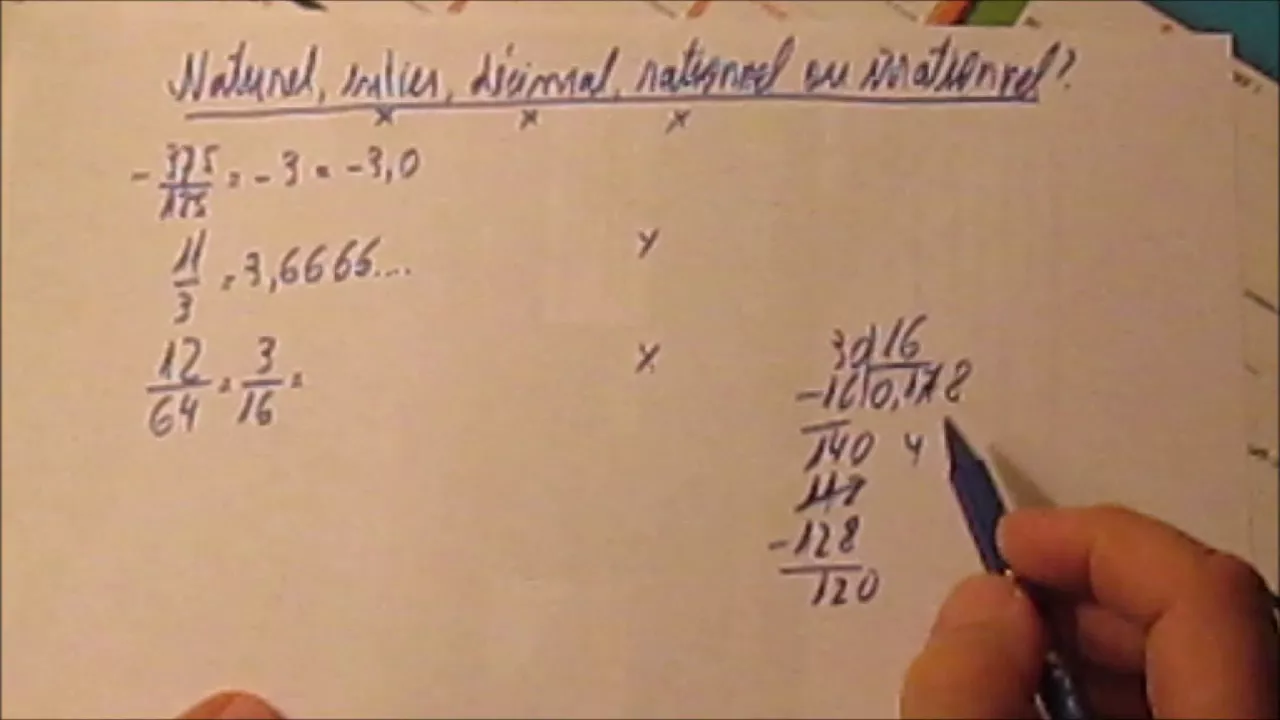 Naturel, entier, décimal, rationnel ou irrationnel?
x x x
- 375/125 = - 3 = -3,0
11/3 = 3,6666... x
12/64 = 3/16 = x
30 16
-16 0,178
140 4
-128
120